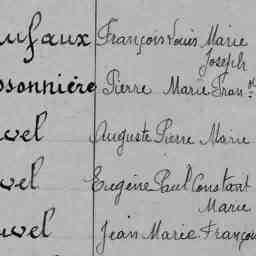 ufaux François Louis Marie
Joseph
ssonnière Pierre Marie Fran
vel Auguste Pierre Marie
vel Eugène Paul Constant
Marie
uvel Jean Marie Françoi